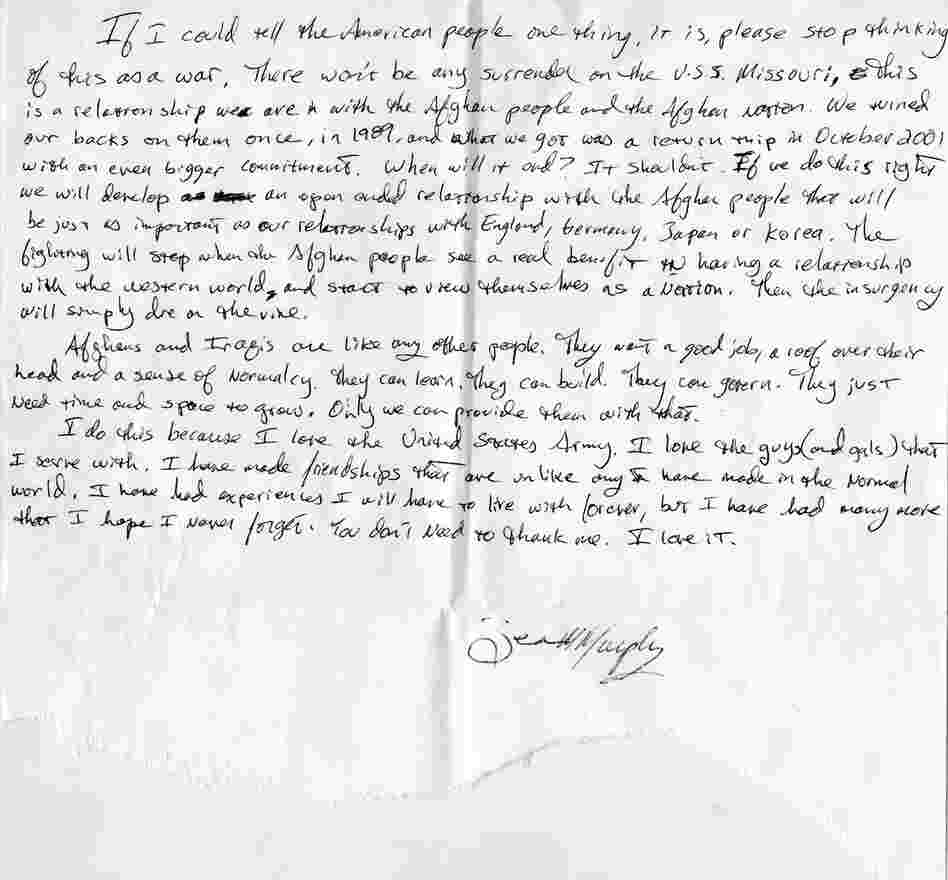 If I could tell the American people one thing, it is, please stop thinking
of this as a war. There won't be any surrender on the U.S.S. Missouri, this
is a relationship we are in with the Afghan people and the Afghan Nation. We turned
our backs on them once, in 1989, and what we got was a return trip in October 2001
with an even bigger commitment. When will it end? It shouldn't. If we do this right
we will develop an open ended relationship with the Afghan people that will
be just as important as our relationships with England, Germany, Japan or Korea. The
fighting will stop when the Afghan people see a real benefit in having a relationship
with the western world, and start to view themselves as a Nation. Then the insurgency
will simply die on the vine.
Afghans and Iraqis are like any other people. They want a good job, a roof over their
head and a sense of Normalcy. They can learn. They can build. They can govern. They just
Need time and space to grow. Only we can provide them with that.
I do this because I love the United States Army. I love the guys (and gals) that
I serve with. I have made friendships that are unlike any I have made in the Normal
world. I have had experiences I will have to live with forever, but I have had many more
that I hope I Never forget. You don't Need to thank me. I love it.
Murphy